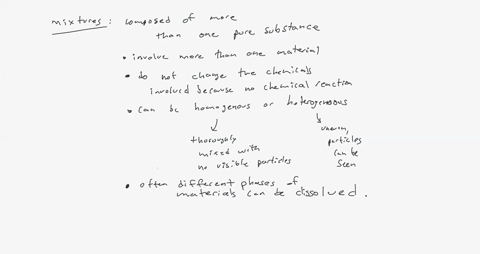 mixtures: composed of more
than one pure substance
• involve more than one material
• do not change the chemicals
involved because no chemical reaction
• can be homogenous or heterogeneous
thoroughly
mixed with
no visible particles
uneven,
particles
can be
seen
• often different phases of
materials can be dissolved.